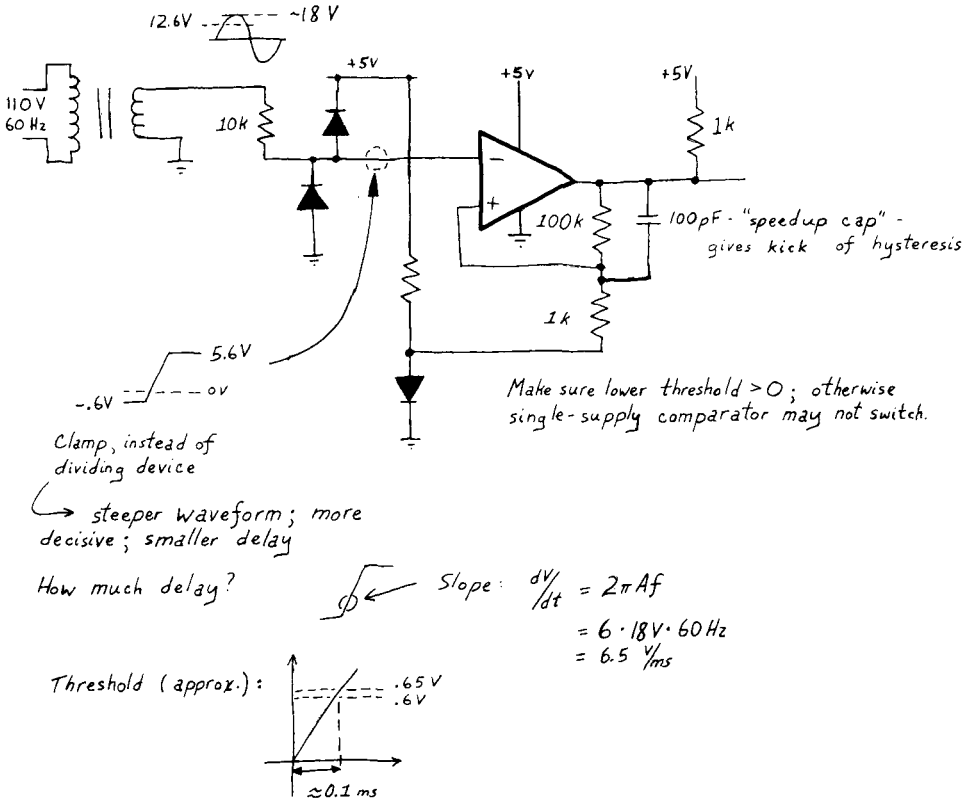 12.6V
~18 V
110V
60 Hz
10k
+5V
+5V
+5V
1k
−
+
100k
100pF - "speedup cap" -
gives kick of hysteresis
1k
5.6V
0V
-.6V
Clamp, instead of
dividing device
steeper waveform; more
decisive; smaller delay
Make sure lower threshold > 0; otherwise
single-supply comparator may not switch.
How much delay?
Slope: dV/dt = 2πAf
= 6 · 18V · 60 Hz
= 6.5 V/ms
Threshold (approx.):
.65 V
.6V
≈0.1 ms